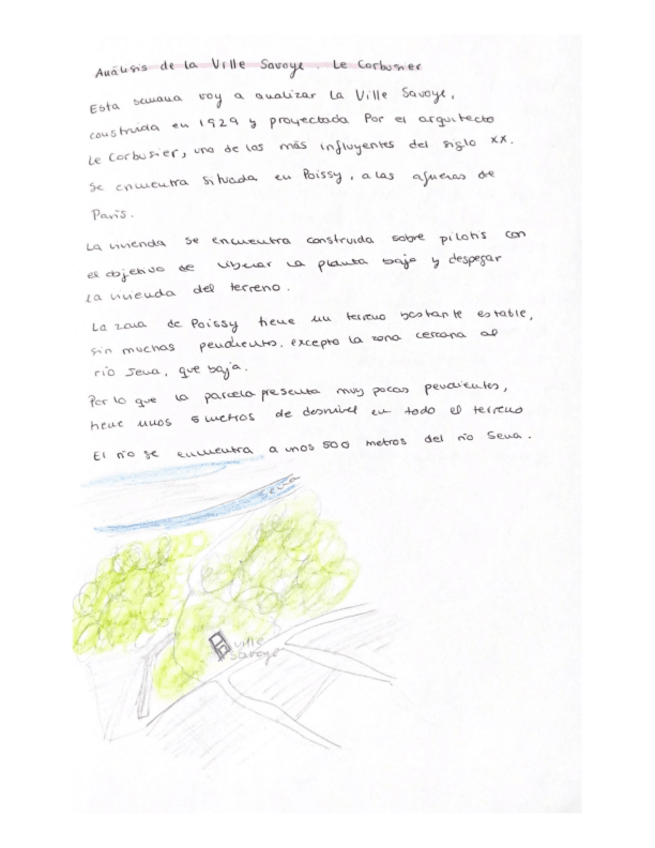 Análisis de la Ville Savoye. Le Corbusier
Esta semana voy a analizar La Ville Savoye,
construida en 1929 y proyectada Por el arquitecto
Le Corbusier, uno de los más influyentes del siglo XX.
Se encuentra situada en Poissy, a las afueras de
París.
La vivienda se encuentra construida sobre pilotis con
el objetivo de liberar la planta baja y despegar
la vivienda del terreno.
La zona de Poissy tiene un terreno bastante estable,
sin muchas pendientes, excepto la zona cercana al
río Sena, que baja.
Por lo que la parcela presenta muy pocas pendientes,
tiene unos 5 metros de desnivel en todo el terreno
El río se encuentra a unos 500 metros del río Sena.
Sena
Ville
Savoye